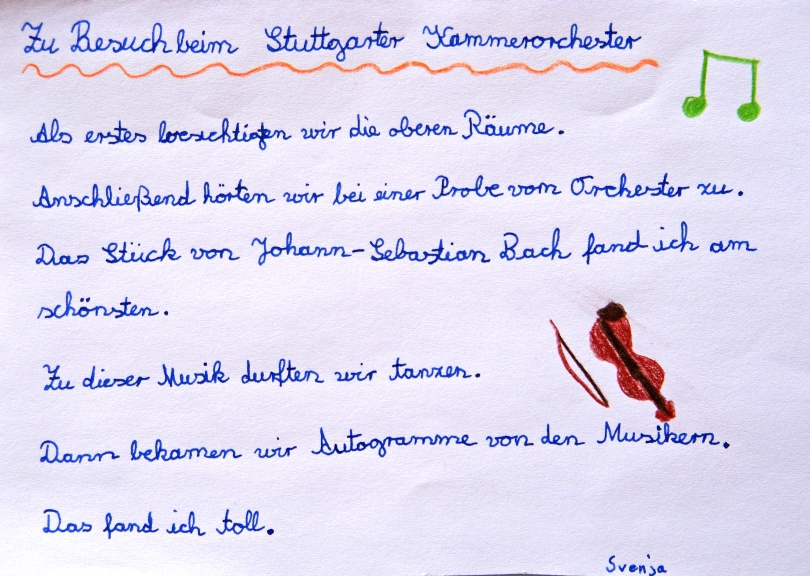 Zu Besuch beim Stuttgarter Kammerorchester
Als erstes besichtigten wir die oberen Räume.
Anschließend hörten wir bei einer Probe vom Orchester zu.
Das Stück von Johann-Sebastian Bach fand ich am
schönsten.
Zu dieser Musik durften wir tanzen.
Dann bekamen wir Autogramme von den Musikern.
Das fand ich toll.
Svenja